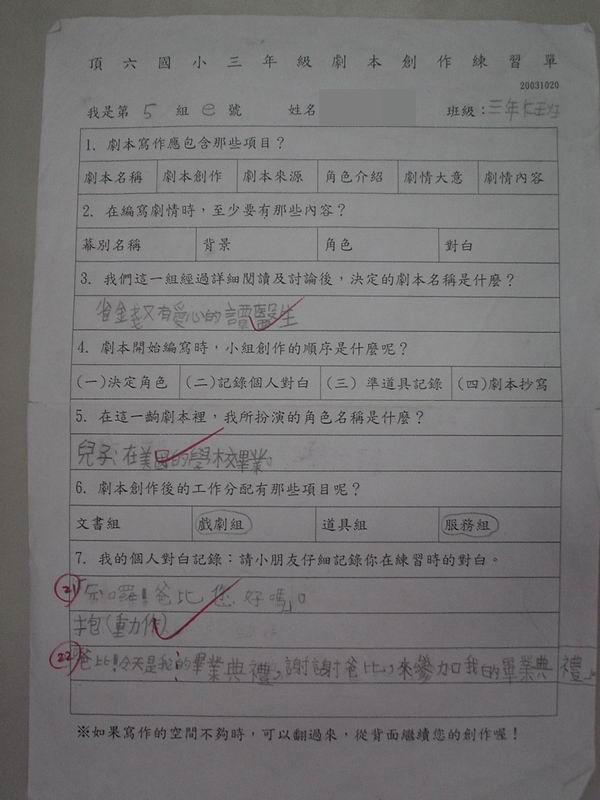 頂六國小三年級劇本創作練習單
20031020
我是第 5 組 e 號 姓名 班級：三年
1. 劇本寫作應包含那些項目？
劇本名稱 劇本創作 劇本來源 角色介紹 劇情大意 劇情內容
2. 在編寫劇情時，至少要有那些內容？
幕別名稱 背景 角色 對白
3. 我們這一組經過詳細閱讀及討論後，決定的劇本名稱是什麼？
省金錢又有愛心的譚醫生
4. 劇本開始編寫時，小組創作的順序是什麼呢？
(一)決定角色 (二)記錄個人對白 (三) 準道具記錄 (四)劇本抄寫
5. 在這一齣劇本裡，我所扮演的角色名稱是什麼？
兒子：在美國的學校畢業。
6. 劇本創作後的工作分配有那些項目呢？
文書組 戲劇組 道具組 服務組
7. 我的個人對白記錄：請小朋友仔細記錄你在練習時的對白。
21 囉！爸比您好嗎」。
抱(動作)
22 爸比！今天是我的畢業典禮，謝謝爸比，來參加我的畢業典禮
※如果寫作的空間不夠時，可以翻過來，從背面繼續您的創作喔！